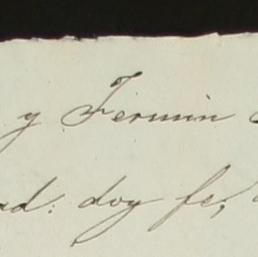 y Fermin
ad: doy fe,